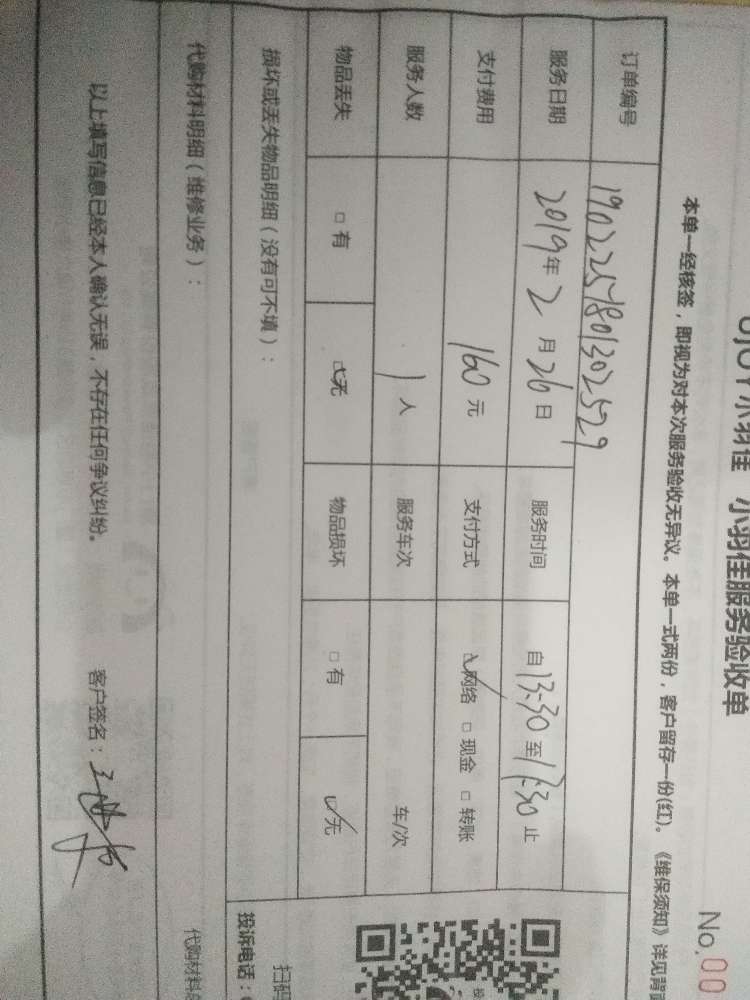 小羽佳 小羽佳服务验收单
No.00
本单一经核签，即视为对本次服务验收无异议。本单一式两份，客户留存一份(红)。《维保须知》详见背
订单编号 1902257801302529
服务日期 2019年2月26日 服务时间 自13:30至17:30止
支付费用 160元 支付方式 ☑网络 □现金 □转账
服务人数 1人 服务车次 车/次
物品丢失 □有 ☑无 物品损坏 □有 ☑无
损坏或丢失物品明细（没有可不填）：
扫码
投诉电话：
代购材料明细（维修业务）： 代购材料
以上填写信息已经本人确认无误，不存在任何争议纠纷。 客户签名：